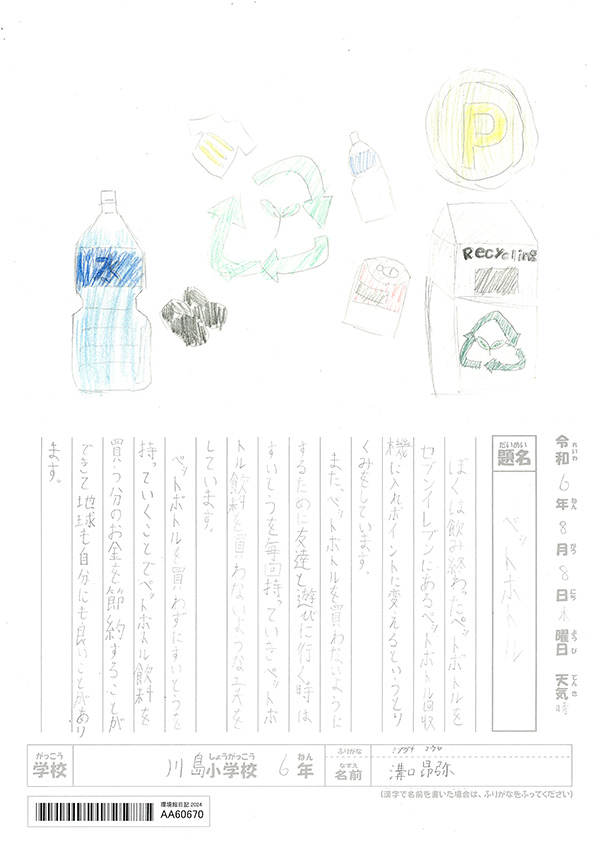 P
Recycling
水
令和6年8月8日木曜日 天気 晴
れいわ ねん がつ にち ようび てんき
だいめい
題名
ペットボトル
ぼくは飲み終わったペットボトルを
セブンイレブンにあるペットボトル回収
機に入れポイントに変えるというとり
くみをしています。
また、ペットボトルを買わないように
するために友達と遊びに行く時は
すいとうを毎回持っていきペットボ
トル飲料を買わないような工夫を
しています。
ペットボトルを買わずにすいとうを
持っていくことでペットボトル飲料を
買う分のお金を節約することが
できて地球も自分にも良いことがあり
ます。
がっこう
学校
川島小学校 6年
しょうがっこう ねん
ふりがな
なまえ
名前
溝口 昂弥
(漢字で名前を書いた場合は、ふりがなをふってください)
環境絵日記 2024
AA60670